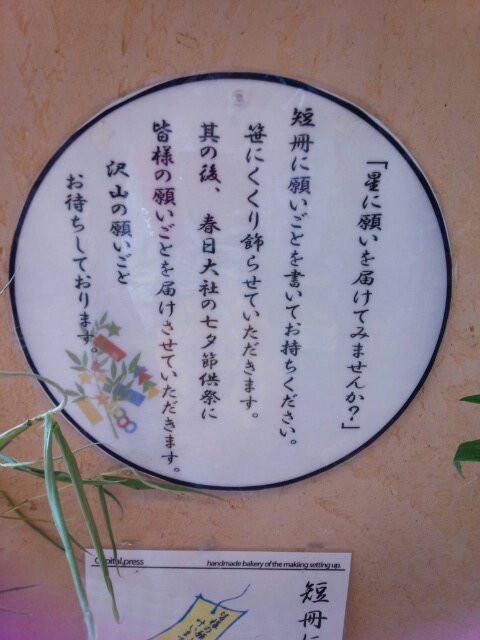 「星に願いを届けてみませんか？」
短冊に願いごとを書いてお持ちください。
笹にくくり飾らせていただきます。
其の後、春日大社の七夕節供祭に
皆様の願いごとを届けさせていただきます。
沢山の願いごと
お待ちしております。
Capital.press
handmade bakery of the making setting up.
短冊に